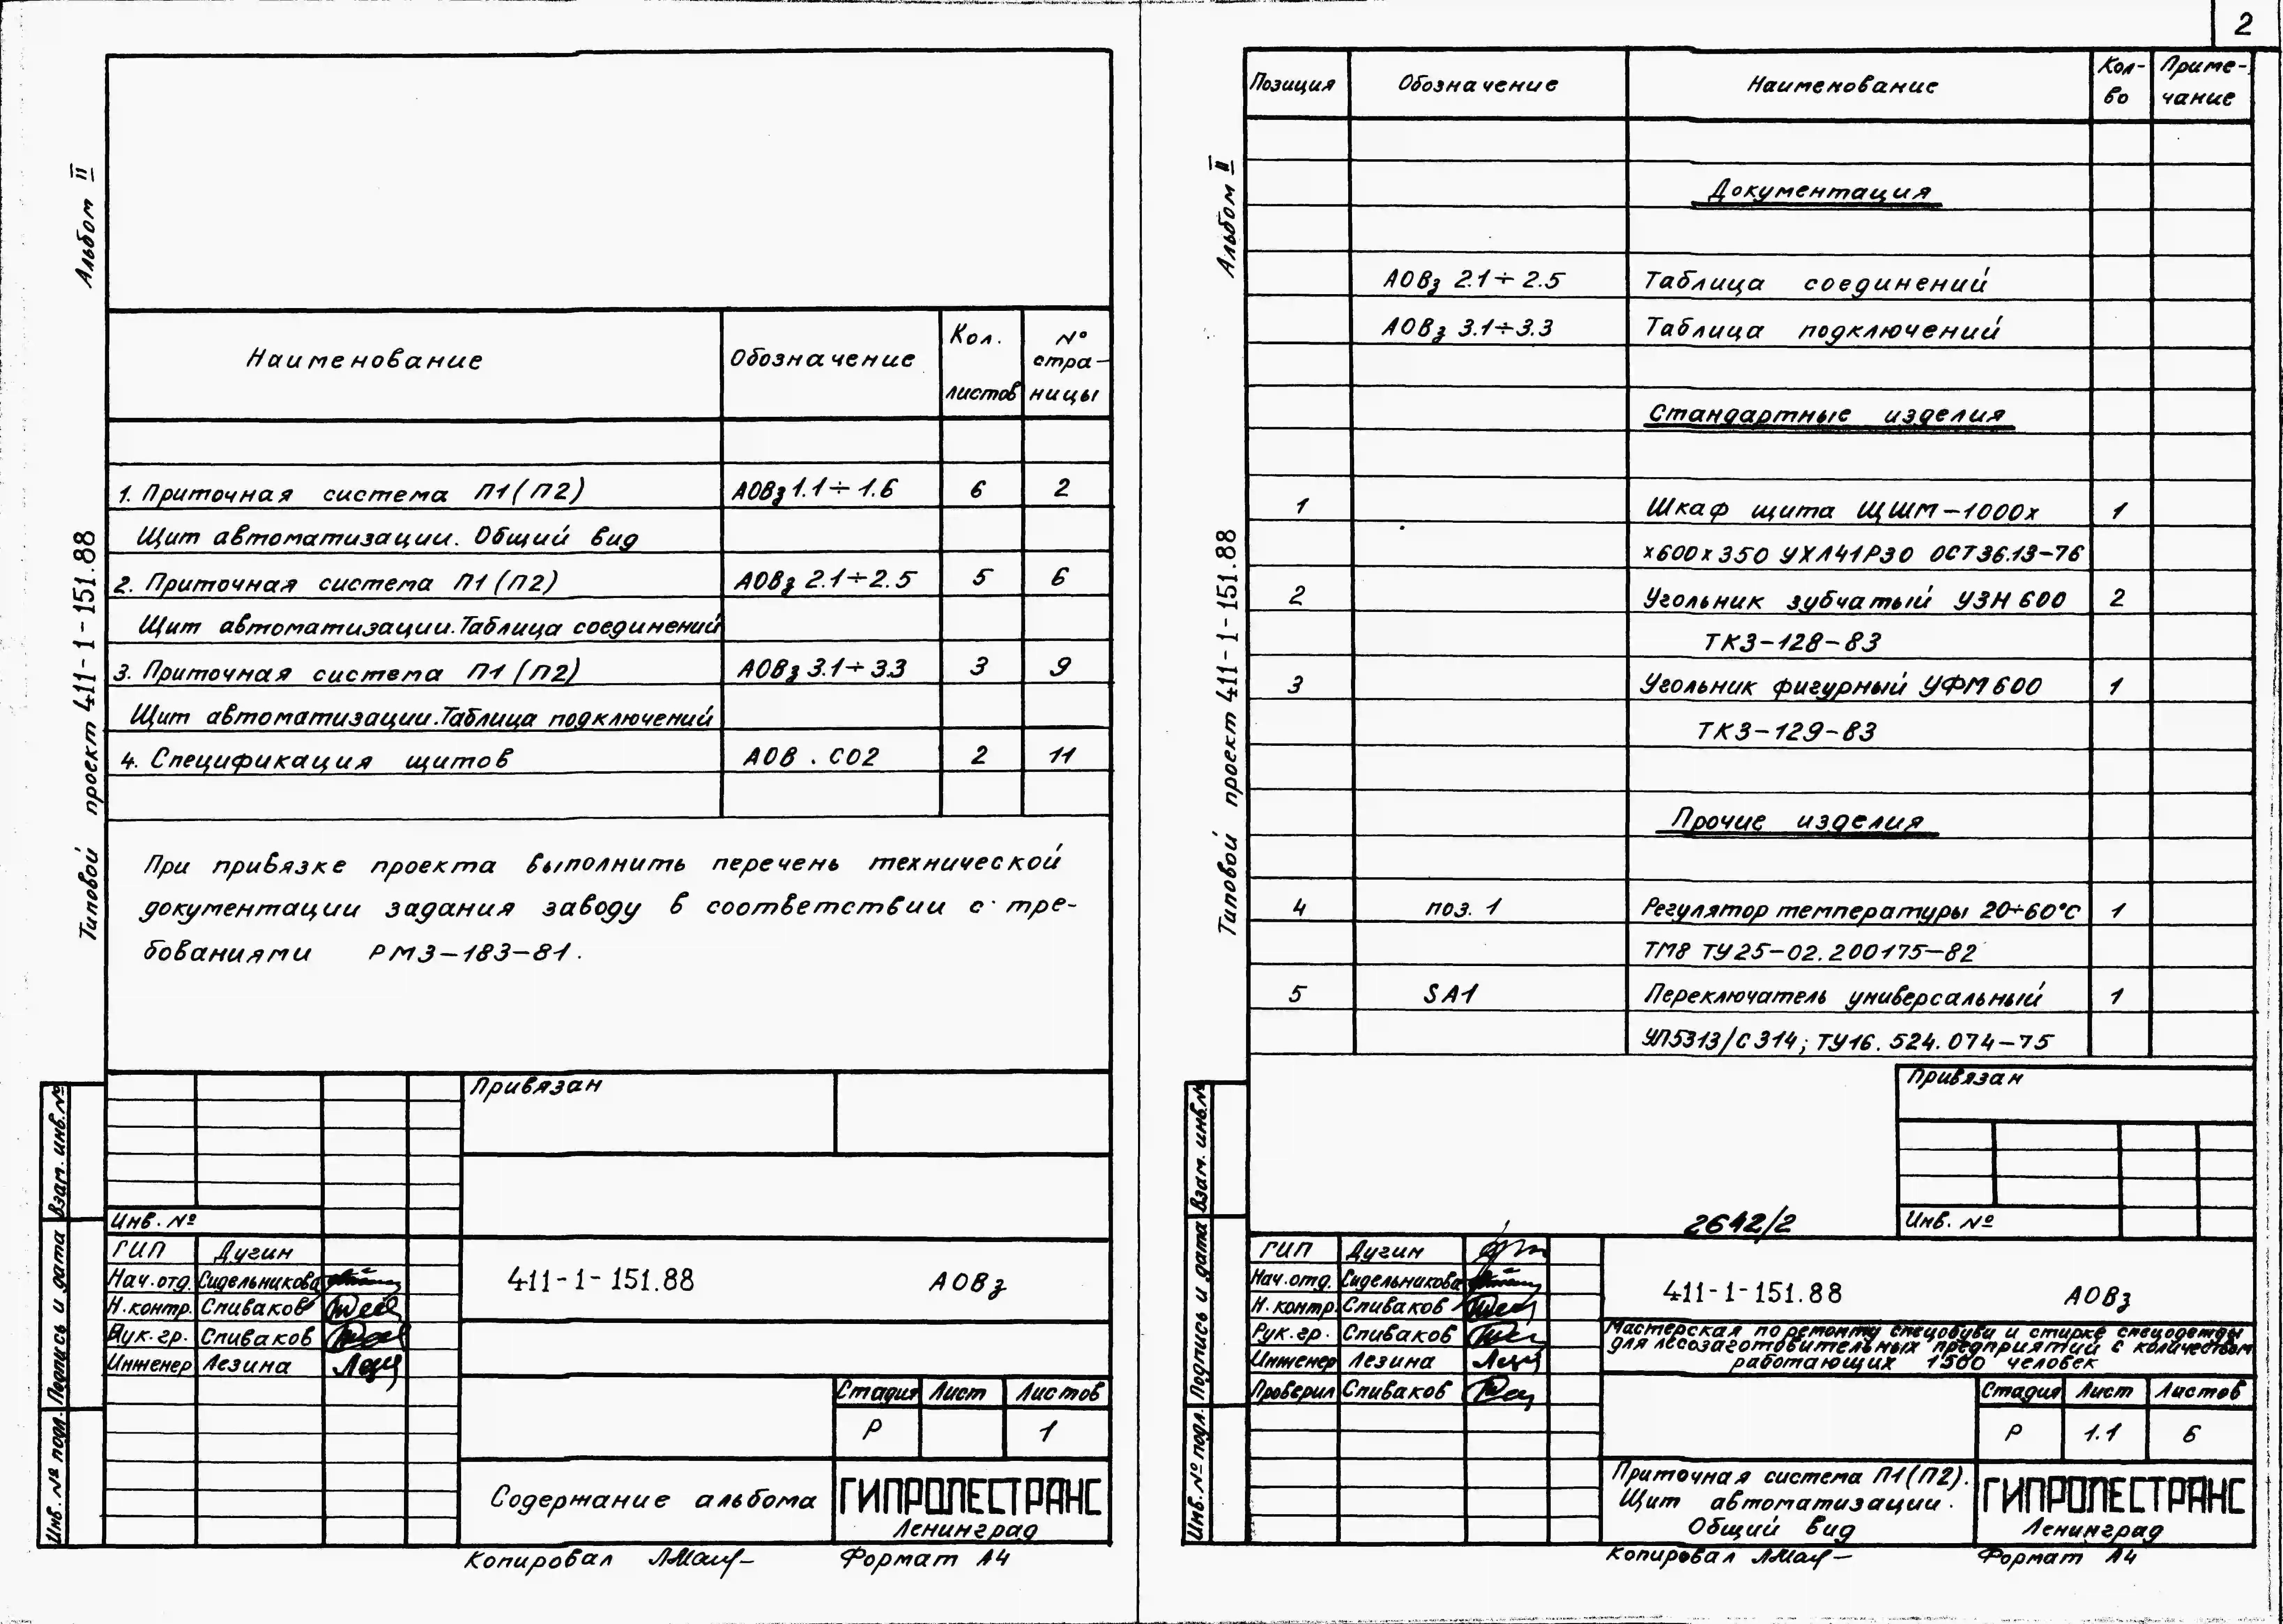 Альбом II
Типовой проект 411-1-151.88
Наименование Обозначение Кол. листов № стра-ницы
1. Приточная система П1(П2) АОВз 1.1÷1.6 6 2
Щит автоматизации. Общий вид
2. Приточная система П1(П2) АОВз 2.1÷2.5 5 6
Щит автоматизации. Таблица соединений
3. Приточная система П1(П2) АОВз 3.1÷3.3 3 9
Щит автоматизации. Таблица подключений
4. Спецификация щитов АОВ.СО2 2 11
При привязке проекта выполнить перечень технической
документации задания заводу в соответствии с тре-
бованиями РМ3-183-81.
Взам. инв.№
Подпись и дата
Инв. № подл.
Привязан
Инв. №
ГИП Дугин
Нач.отд. Сидельникова
Н.контр. Спиваков
Рук.гр. Спиваков
Инженер Лезина
411-1-151.88 АОВз
Стадия Лист Листов
Р 1
Содержание альбома
ГИПРОЛЕСТРАНС
Ленинград
Копировал
Формат А4
2
Альбом II
Типовой проект 411-1-151.88
Позиция Обозначение Наименование Кол-во Приме-чание
Документация
АОВз 2.1÷2.5 Таблица соединений
АОВз 3.1÷3.3 Таблица подключений
Стандартные изделия
1 Шкаф щита ЩШМ-1000х 1
х600х350 УХЛ41Р30 ОСТ36.13-76
2 Угольник зубчатый УЗН 600 2
ТК3-128-83
3 Угольник фигурный УФМ600 1
ТК3-129-83
Прочие изделия
4 поз. 1 Регулятор температуры 20÷60°С 1
ТМ8 ТУ25-02.200175-82
5 SA1 Переключатель универсальный 1
УП5313/С314; ТУ16.524.074-75
Привязан
Инв. №
2642/2
Взам. инв.№
Подпись и дата
Инв. № подл.
ГИП Дугин
Нач.отд. Сидельникова
Н.контр. Спиваков
Рук.гр. Спиваков
Инженер Лезина
Проверил Спиваков
411-1-151.88 АОВз
Мастерская по ремонту спецобуви и стирке спецодежды
для лесозаготовительных предприятий с количеством
работающих 1500 человек
Стадия Лист Листов
Р 1.1 6
Приточная система П1(П2).
Щит автоматизации.
Общий вид
ГИПРОЛЕСТРАНС
Ленинград
Копировал
Формат А4